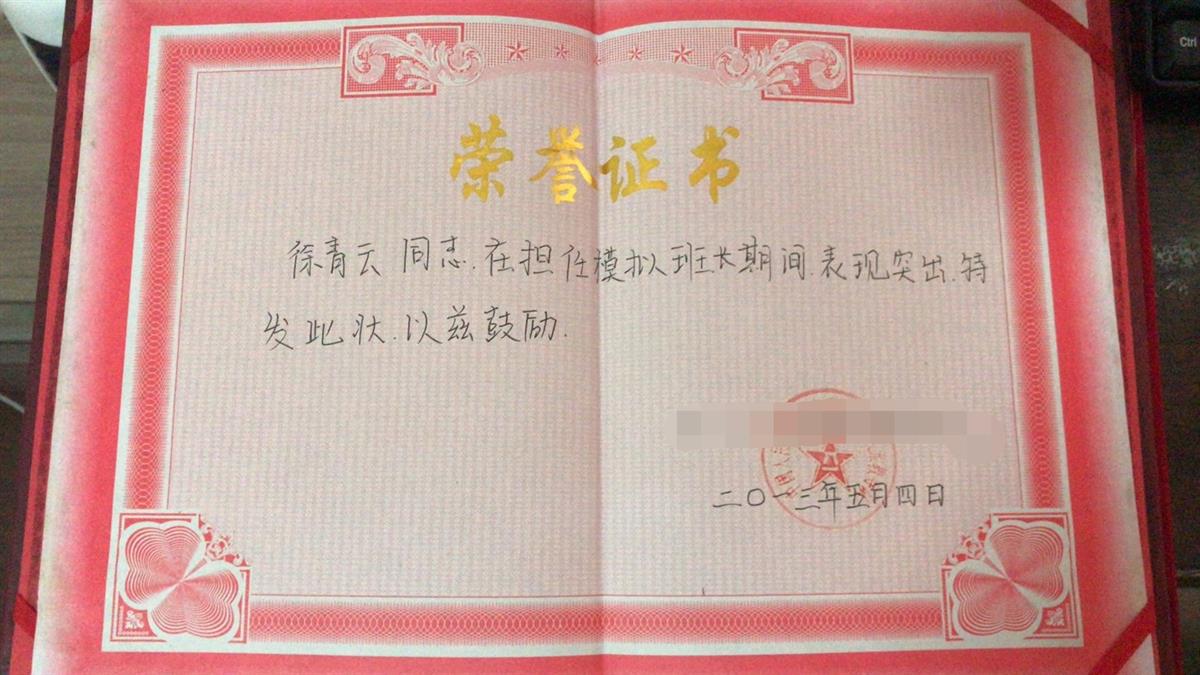 荣誉证书
徐青云同志.在担任模拟班长期间.表现突出.特
发此状.以兹鼓励.
二〇一三年五月四日
Ctrl